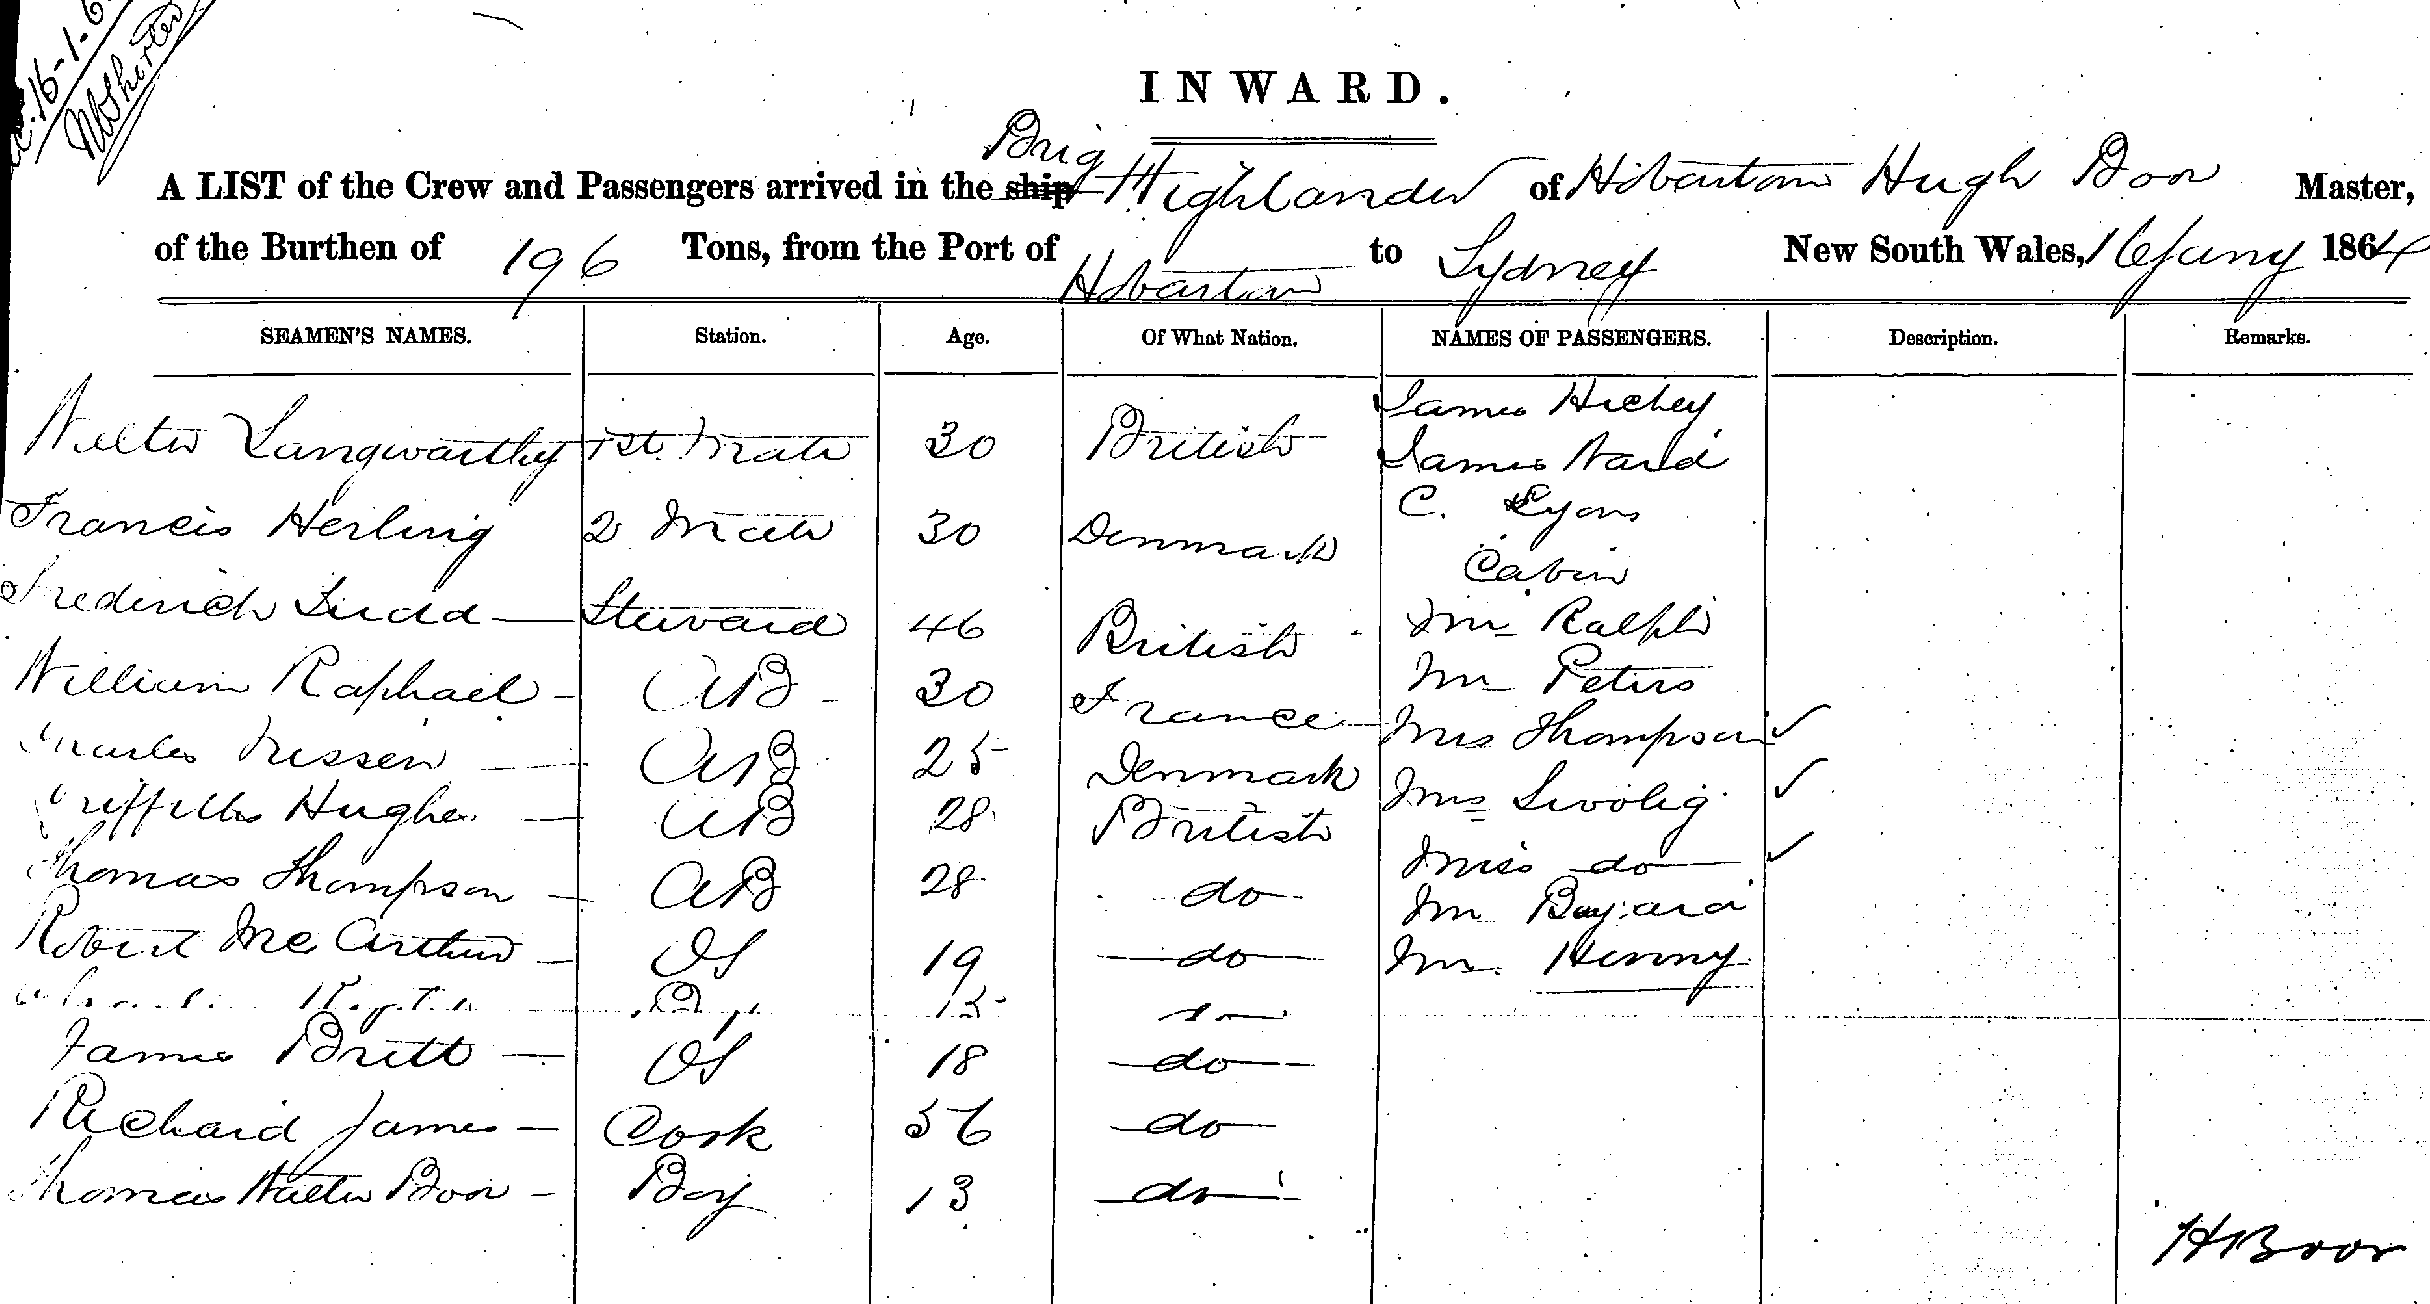 16-1-6
INWARD.
Brig
A LIST of the Crew and Passengers arrived in the ship Highlander of Hobarton Hugh Boor Master,
of the Burthen of 196 Tons, from the Port of Hobarton to Sydney New South Wales, 16 Jany 1864
SEAMEN'S NAMES. Station. Age. Of What Nation. NAMES OF PASSENGERS. Description. Remarks.
Walter Langworthy 1st Mate 30 British
Francis Herling 2 Mate 30 Denmark
Frederick Ludd Steward 46 British
William Raphael AB 30 France
Charles Nissen AB 25 Denmark
Griffiths Hughes AB 28 British
Thomas Thompson AB 28 do
Robert McArthur OS 19 do
Boy 15 do
James Britt OS 18 do
Richard James Cook 56 do
Thomas Walter Boor Boy 13 do
James Hickey
James Ward
C. Lyons
Cabin
Mr Ralph
Mr Peters
Mrs Thompson ✓
Mrs ✓
Miss do ✓
Mr Bayard
Mr. Henny
H Boor